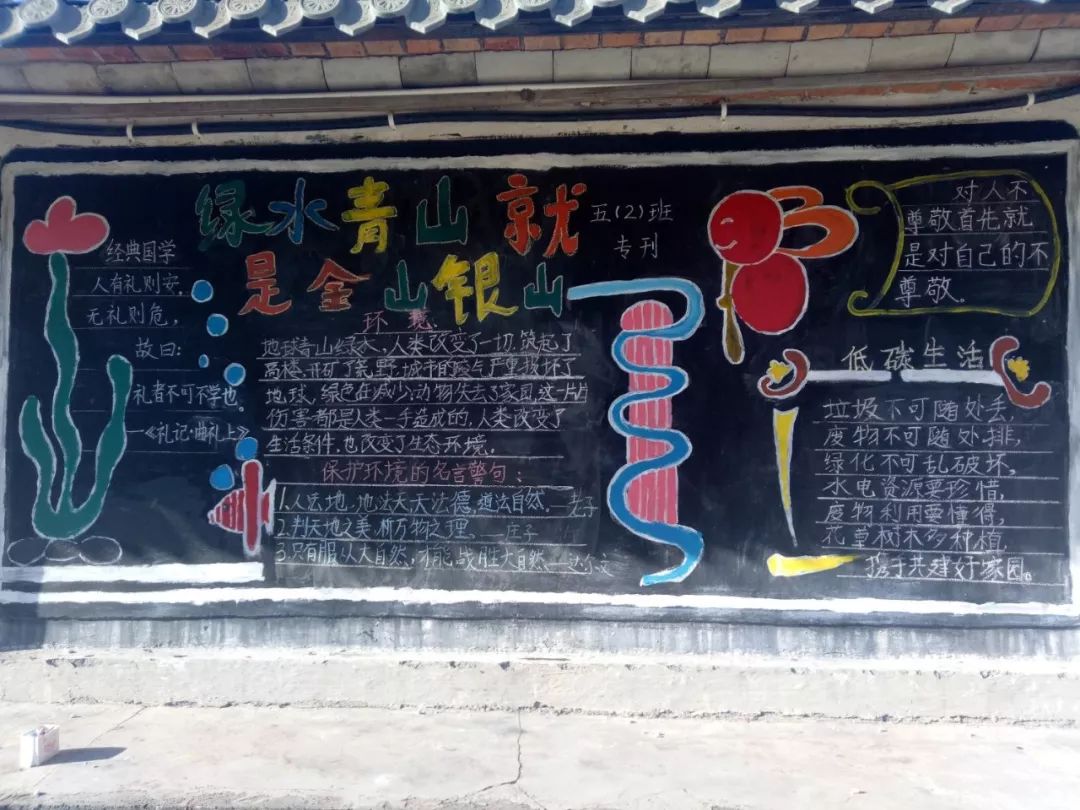 绿水青山就
是金山银山
五(2)班
专刊
经典国学
人有礼则安,
无礼则危,
故曰:
礼者不可不学也。
—《礼记·曲礼上》
环境
地球青山绿水,人类改变了一切,筑起了
高楼,开矿了荒野,城市严重破坏了
地球,绿色在减少,动物失去了家园,这一片片
伤害都是人类一手造成的,人类改变了
生活条件,也改变了生态环境。
保护环境的名言警句:
1.人法地,地法天,天法德,道法自然。—老子
2.判天地之美,析万物之理。—庄子
3.只有服从大自然,才能战胜大自然—达尔文
对人不
尊敬首先就
是对自己的不
尊敬。
低碳生活
垃圾不可随处丢,
废物不可随处排,
绿化不可乱破坏,
水电资源要珍惜,
废物利用要懂得,
花草树木多种植,
携手共建好家园。